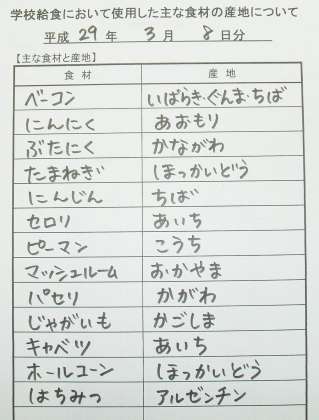 学校給食において使用した主な食材の産地について
平成 29 年 3 月 8 日分
【主な食材と産地】
食材 産地
ベーコン いばらき・ぐんま・ちば
にんにく あおもり
ぶたにく かながわ
たまねぎ ほっかいどう
にんじん ちば
セロリ あいち
ピーマン こうち
マッシュルーム おかやま
パセリ かがわ
じゃがいも かごしま
キャベツ あいち
ホールコーン ほっかいどう
はちみつ アルゼンチン